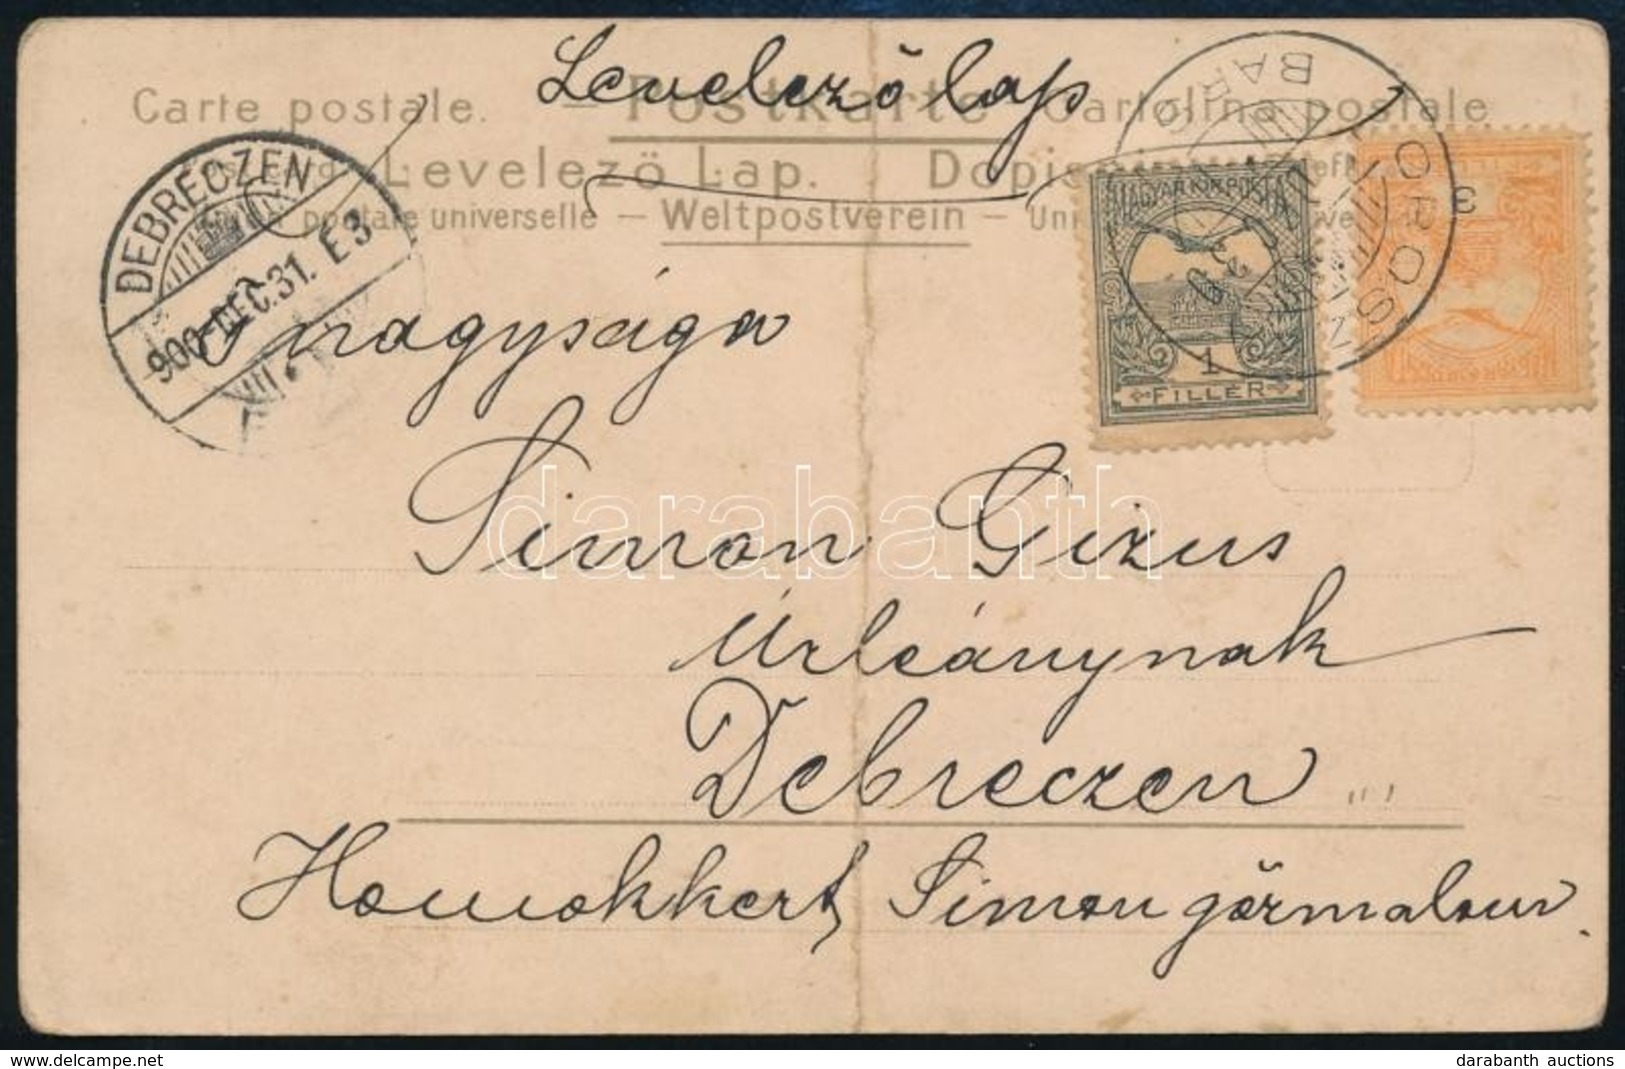 Levelező lap
Carte postale. — Postkarte — Cartolina postale
Levelező Lap.
postale universelle — Weltpostverein —
DEBRECZEN
900 DEC. 31. E 3
OROSZI
BARS
MAGYAR KIR. POSTA
1
FILLÉR
3
Ő nagysága
Simon Gizus
Úrleánynak
Debreczen
Homokkert Simon gőzmalom.
darabanth
darabanth auctions